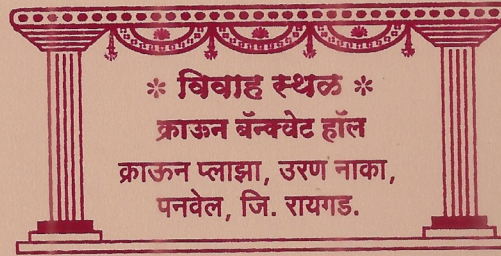 * विवाह स्थळ *
क्राऊन बॅन्क्वेट हॉल
क्राऊन प्लाझा, उरण नाका,
पनवेल, जि. रायगड.